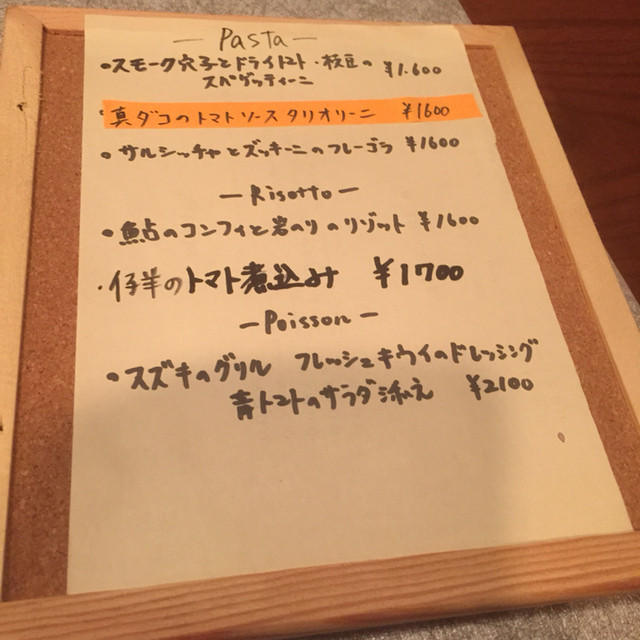 — Pasta —
・スモーク穴子とドライトマト・枝豆の
スパゲッティーニ ¥1.600
・真ダコのトマトソース タリオリーニ ¥1600
・サルシッチャとズッキーニのフレーゴラ ¥1600
— Risotto —
・鮎のコンフィと岩のりのリゾット ¥1600
・仔羊のトマト煮込み ¥1700
— Poisson —
・スズキのグリル フレッシュキウイのドレッシング
青トマトのサラダ添え ¥2100